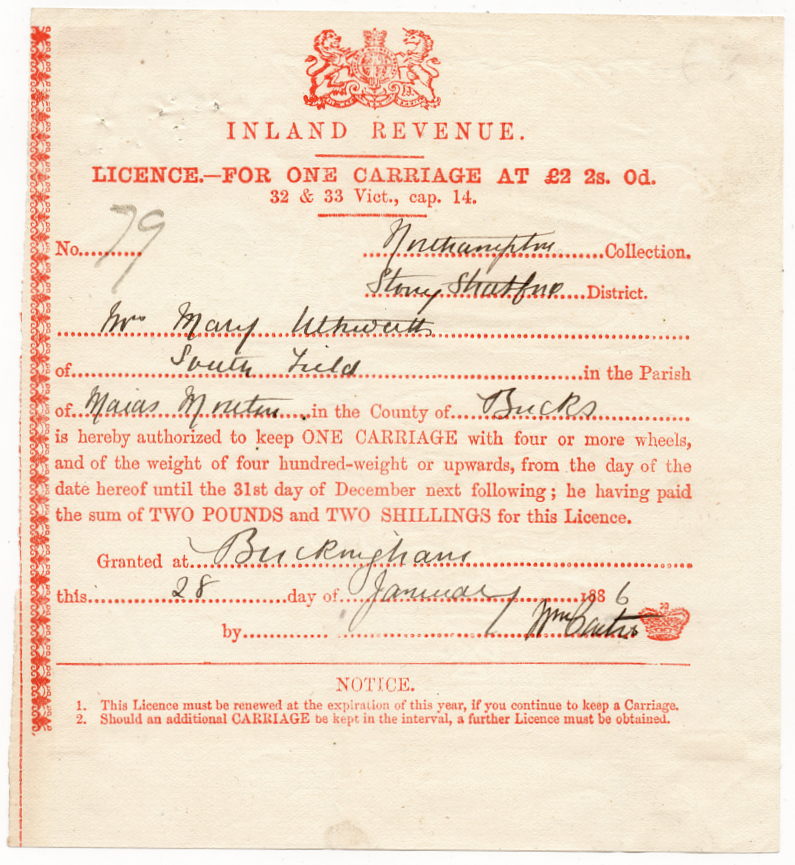 INLAND REVENUE.
LICENCE.—FOR ONE CARRIAGE AT £2 2s. 0d.
32 & 33 Vict., cap. 14.
No. 79 Northampton Collection.
Stony Stratford District.
Mrs Mary Uthwatt
of South Field in the Parish
of Maids Moreton in the County of Bucks
is hereby authorized to keep ONE CARRIAGE with four or more wheels,
and of the weight of four hundred-weight or upwards, from the day of the
date hereof until the 31st day of December next following; he having paid
the sum of TWO POUNDS and TWO SHILLINGS for this Licence.
Granted at Buckingham
this 28 day of January 1886
by Wm
NOTICE.
1. This Licence must be renewed at the expiration of this year, if you continue to keep a Carriage.
2. Should an additional CARRIAGE be kept in the interval, a further Licence must be obtained.